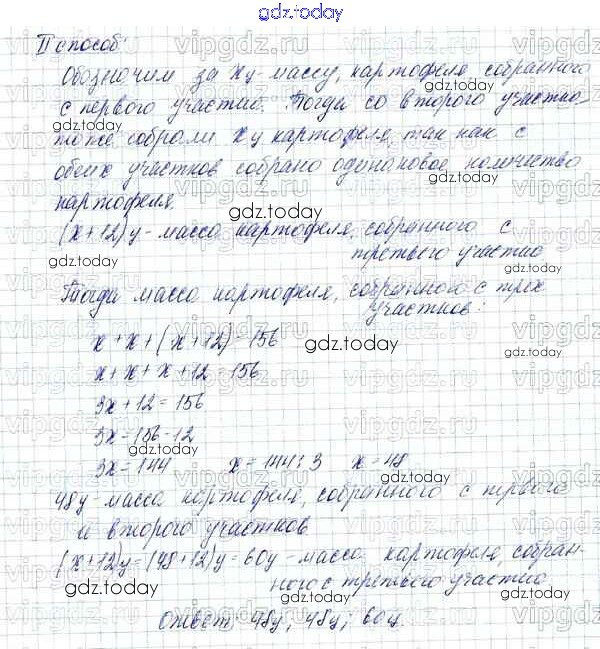 gdz.today
II способ:
Обозначим за x ц - массу, картофеля собранного
с первого участка. Тогда со второго участка
тоже собрали x ц картофеля, так как с
обеих участков собрано одинаковое количество
картофеля.
(x+12) ц - масса картофеля, собранного с
третьего участка
Тогда масса картофеля, собранного с трех
участков:
x + x + (x + 12) = 156
x + x + x + 12 = 156
3x + 12 = 156
3x = 156 - 12
3x = 144 x = 144 : 3 x = 48
48 ц - масса картофеля, собранного с первого
и второго участков.
(x+12) ц = (48+12) ц = 60 ц - масса картофеля, собран-
ного с третьего участка
Ответ: 48 ц; 48 ц; 60 ц.